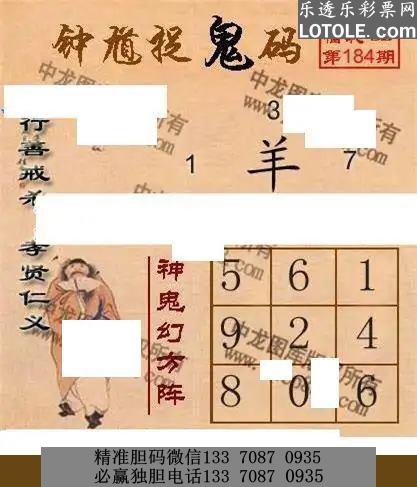 乐透乐彩票网
LOTOLE.COM
钟馗捉鬼码
第184期
行善戒
孝贤仁义
3
1 羊 7
神鬼幻方阵
5 6 1
9 2 4
8 0 6
精准胆码微信133 7087 0935
必赢独胆电话133 7087 0935